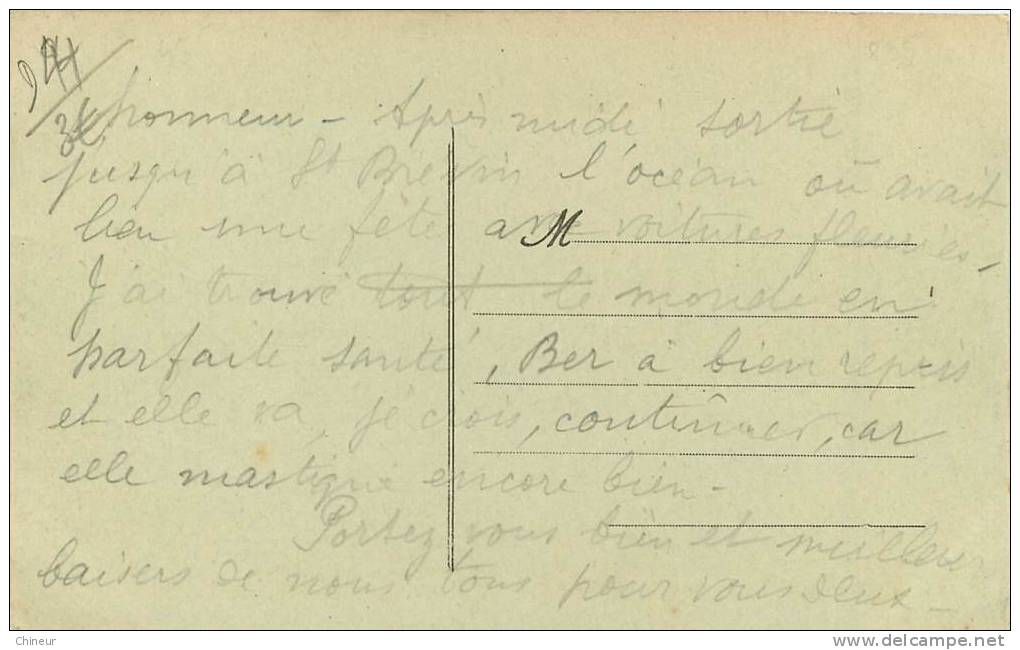 honneur - Après midi sortie
jusqu'à St Brévin l'océan où avait
lieu une fête avec voitures fleuries -
M
J'ai trouvé tout le monde en
parfaite santé, Ber à bien repris
et elle va, je crois, continuer, car
elle mastique encore bien -
Portez vous bien et meilleurs
baisers de nous tous pour vous deux -
Chineur
www.delcampe.net